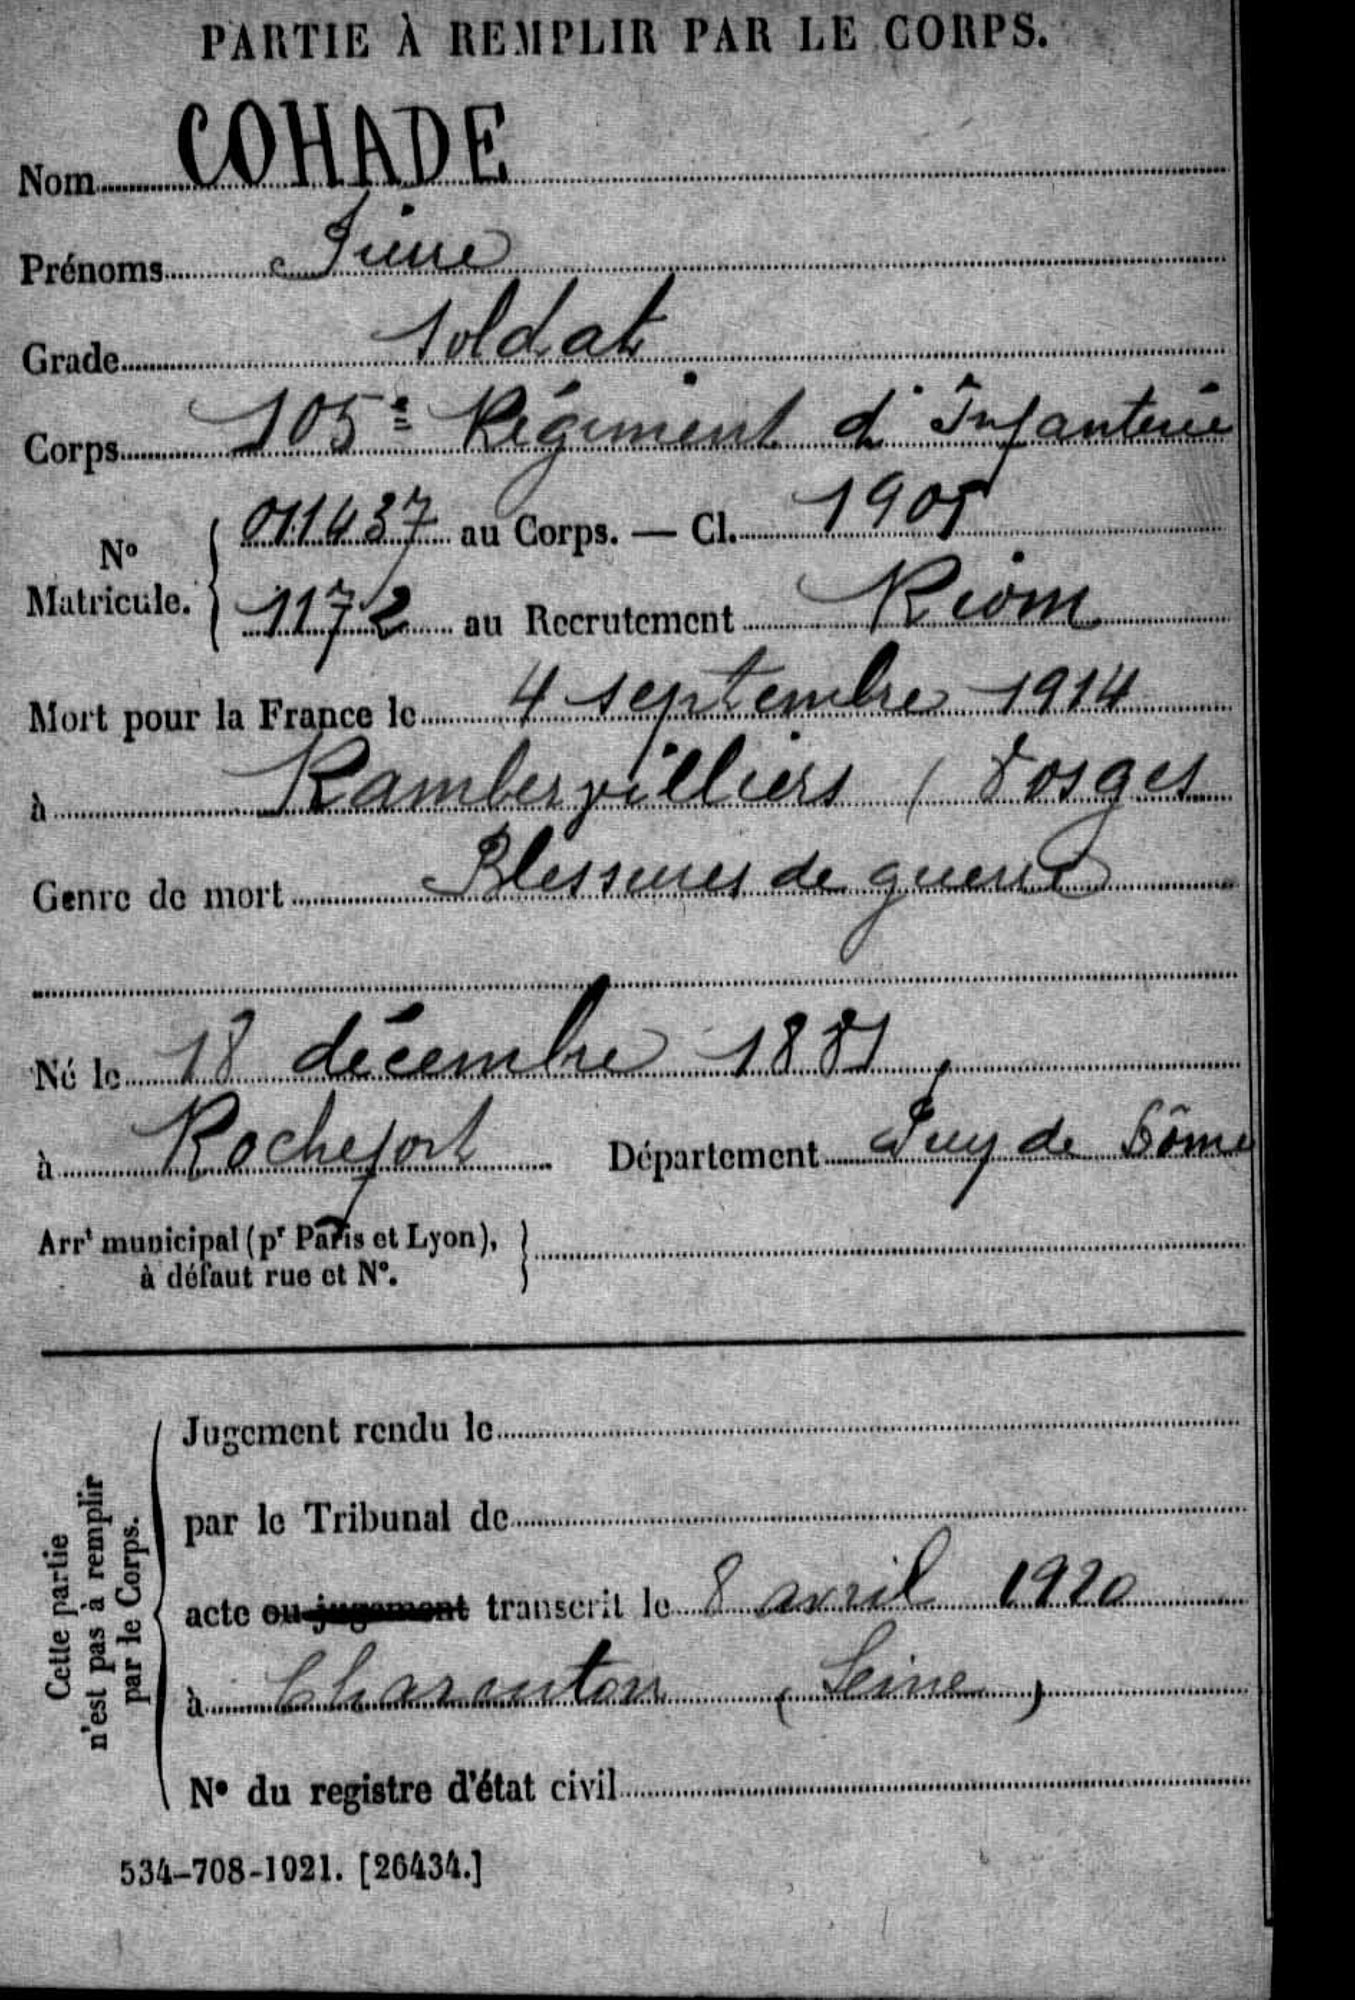 PARTIE À REMPLIR PAR LE CORPS.
Nom COHADE
Prénoms Pierre
Grade Soldat
Corps 105e Régiment d'Infanterie
N° Matricule. { 011437 au Corps. — Cl. 1901
1172 au Recrutement Riom
Mort pour la France le 4 septembre 1914
à Rambervilliers ( Vosges
Genre de mort Blessures de guerre
Né le 18 décembre 1881
à Rochefort Département Puy de Dôme
Arrt municipal (pr Paris et Lyon), }
à défaut rue et N°.
Cette partie n'est pas à remplir par le Corps.
Jugement rendu le
par le Tribunal de
acte ou jugement transcrit le 8 avril 1920
à Charenton (Seine)
N° du registre d'état civil
534-708-1921. [26434.]